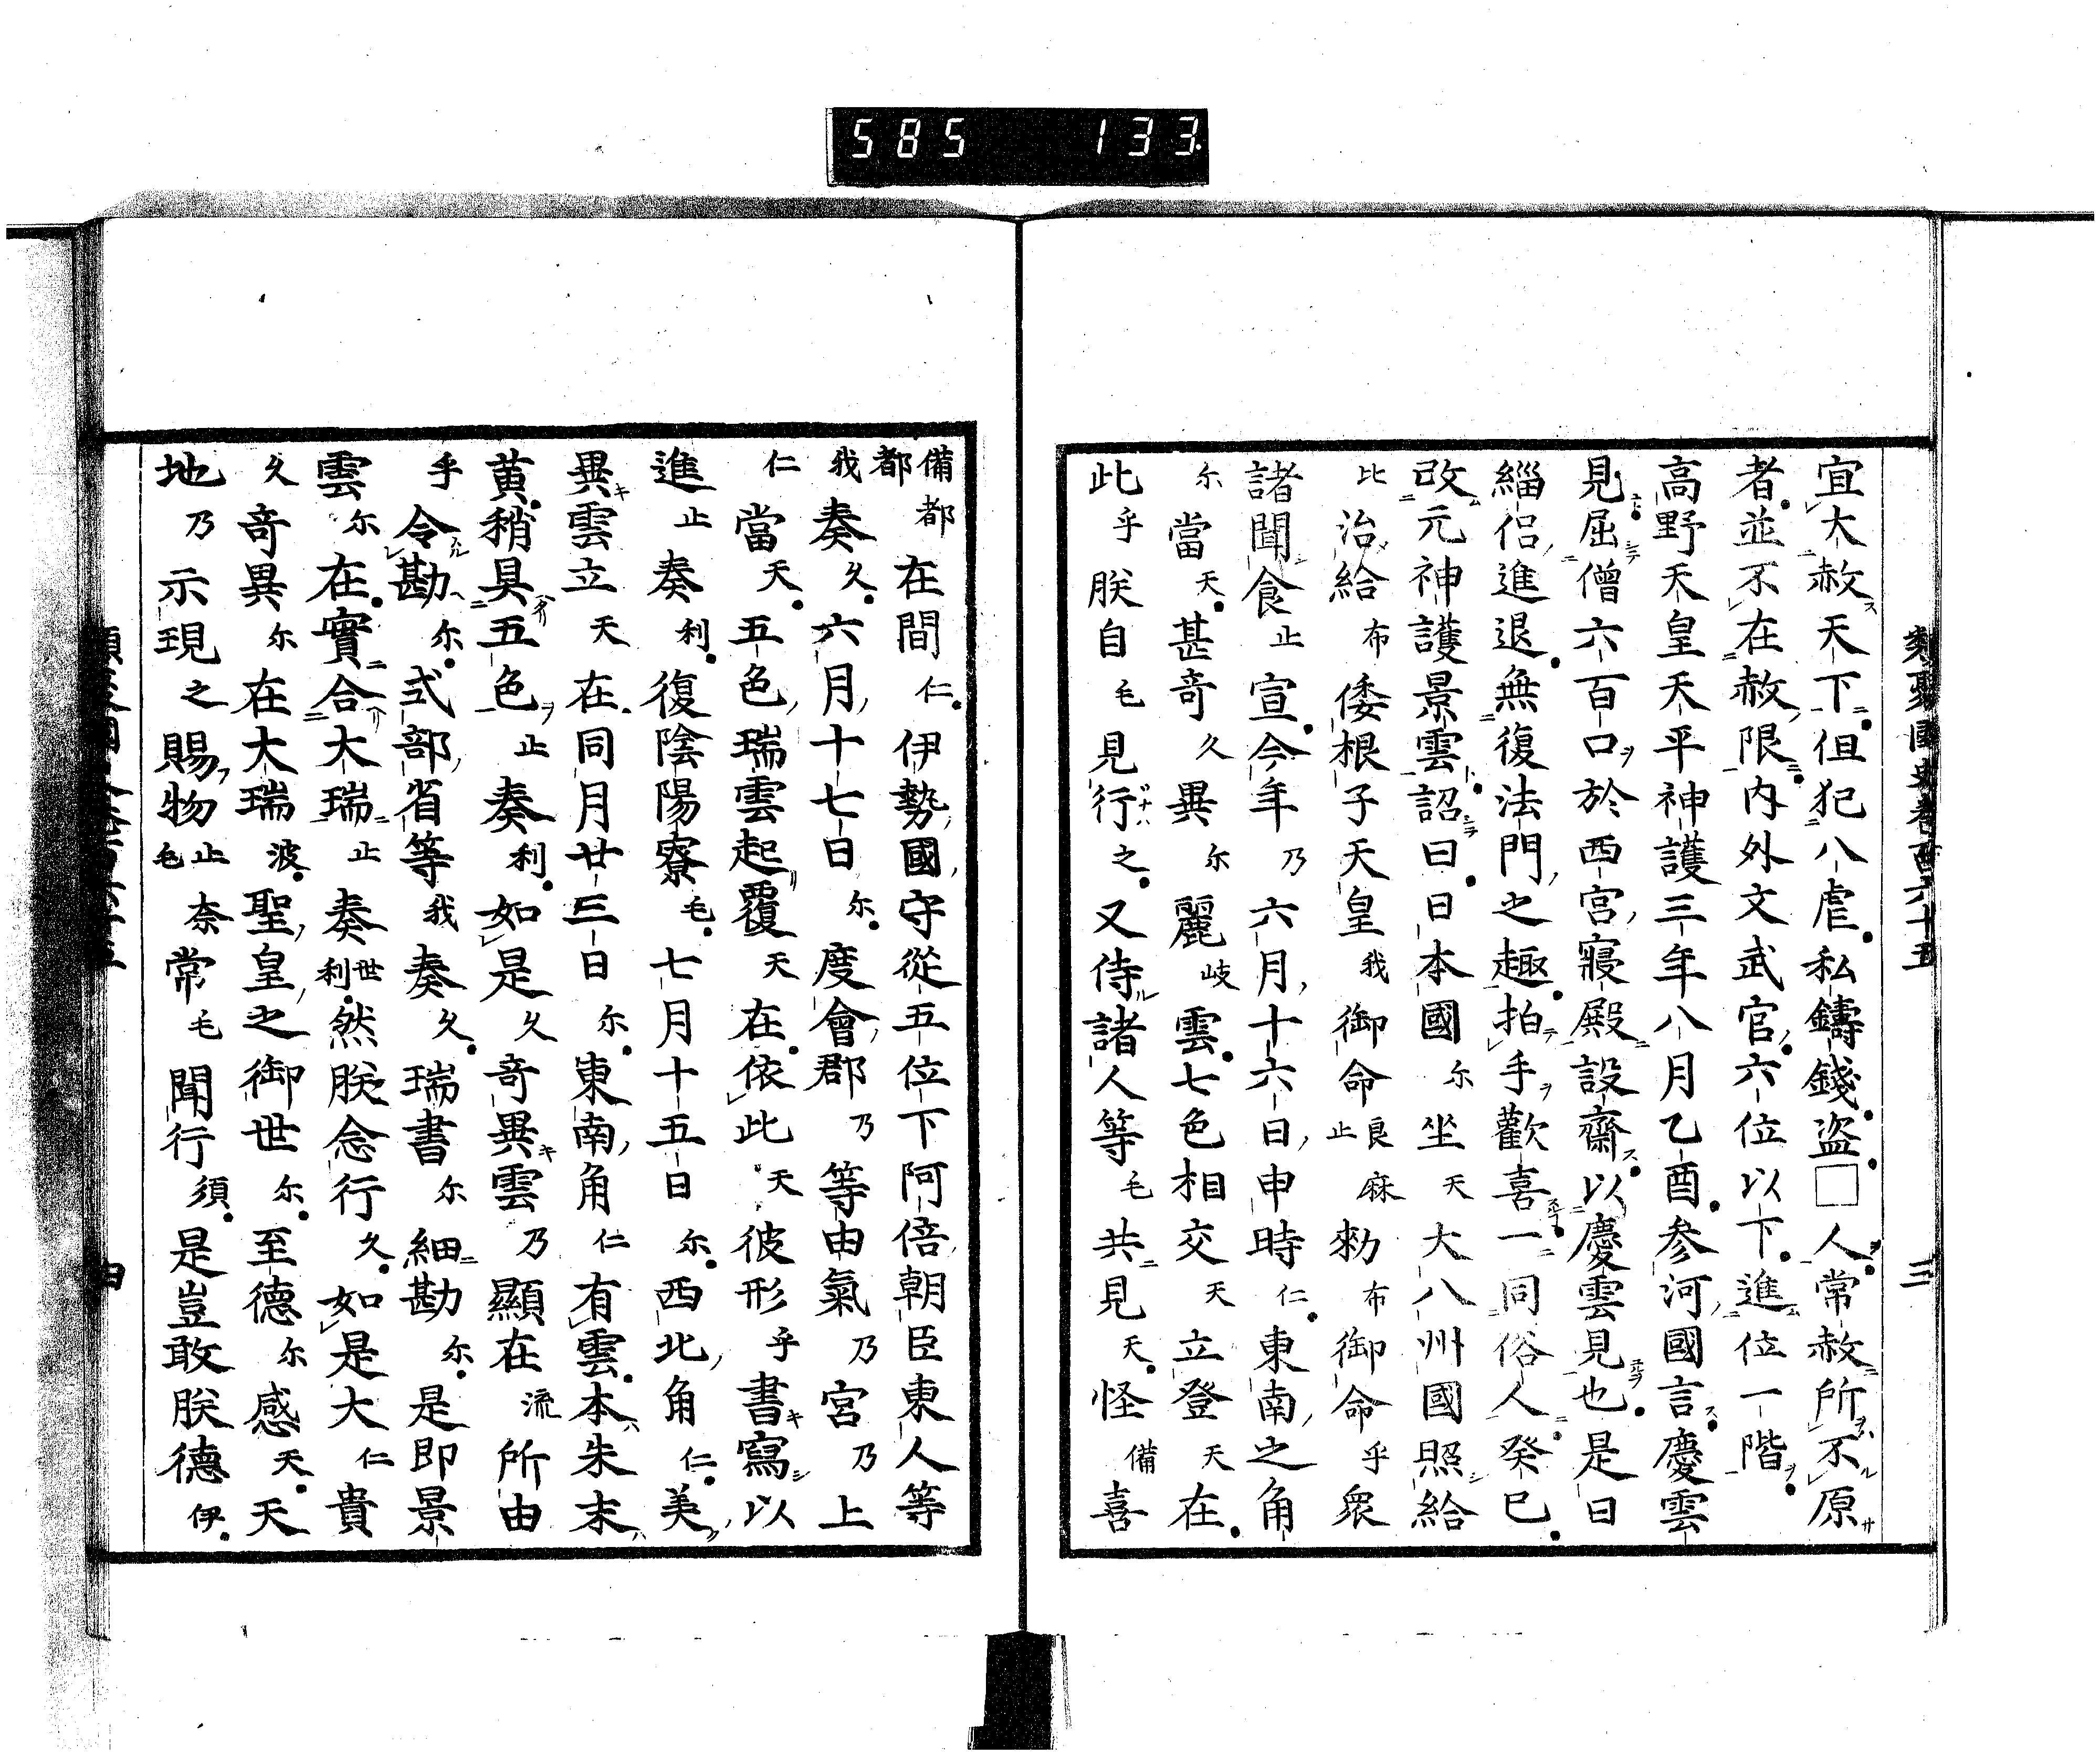 585 133
類聚國史卷百六十五 三
宜大赦天下但犯八虐私鑄錢盗□人常赦所不原
者並不在赦限内外文武官六位以下進位一階
高野天皇天平神護三年八月乙酉参河國言慶雲
見屈僧六百口於西宮寢殿設齋以慶雲見也是日
緇侶進退無復法門之趣拍手歡喜一同俗人癸巳
改元神護景雲詔曰日本國尓坐天大八州國照給
比治給布倭根子天皇我御命良麻止勅布御命乎衆
諸聞食止宣今年乃六月十六日申時仁東南之角
尓當天甚奇久異尓麗岐雲七色相交天立登天在
此乎朕自毛見行之又侍諸人等毛共見天怪備喜
備都都在間仁伊勢國守從五位下阿倍朝臣東人等
我奏久六月十七日尓度會郡乃等由氣乃宮乃上
仁當天五色瑞雲起覆天在依此天彼形乎書寫以
進止奏利復陰陽寮毛七月十五日尓西北角仁美
異雲立天在同月廿三日尓東南角仁有雲本朱末
黄稍具五色止奏利如是久奇異雲乃顯在流所由
乎令勘尓式部省等我奏久瑞書尓細勘尓是即景
雲尓在實合大瑞止奏世利然朕念行久如是大仁貴
久奇異尓在大瑞波聖皇之御世尓至德尓感天天
地乃示現之賜物止毛奈常毛聞行須是豈敢朕德伊